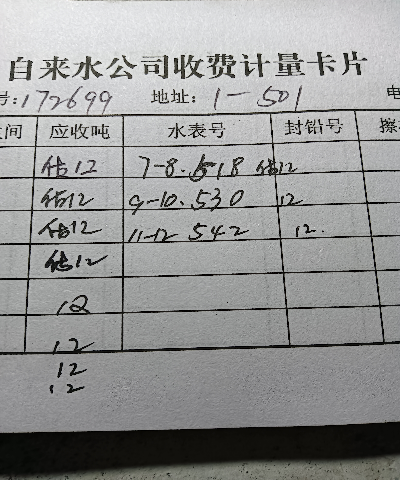 自来水公司收费计量卡片
号:172699 地址:1-501 电
间 应收吨 水表号 封铅号 擦
估12 7-8.518 估12
估12 9-10.530 12
估12 11-12 542 12.
估12
12
12
12
12